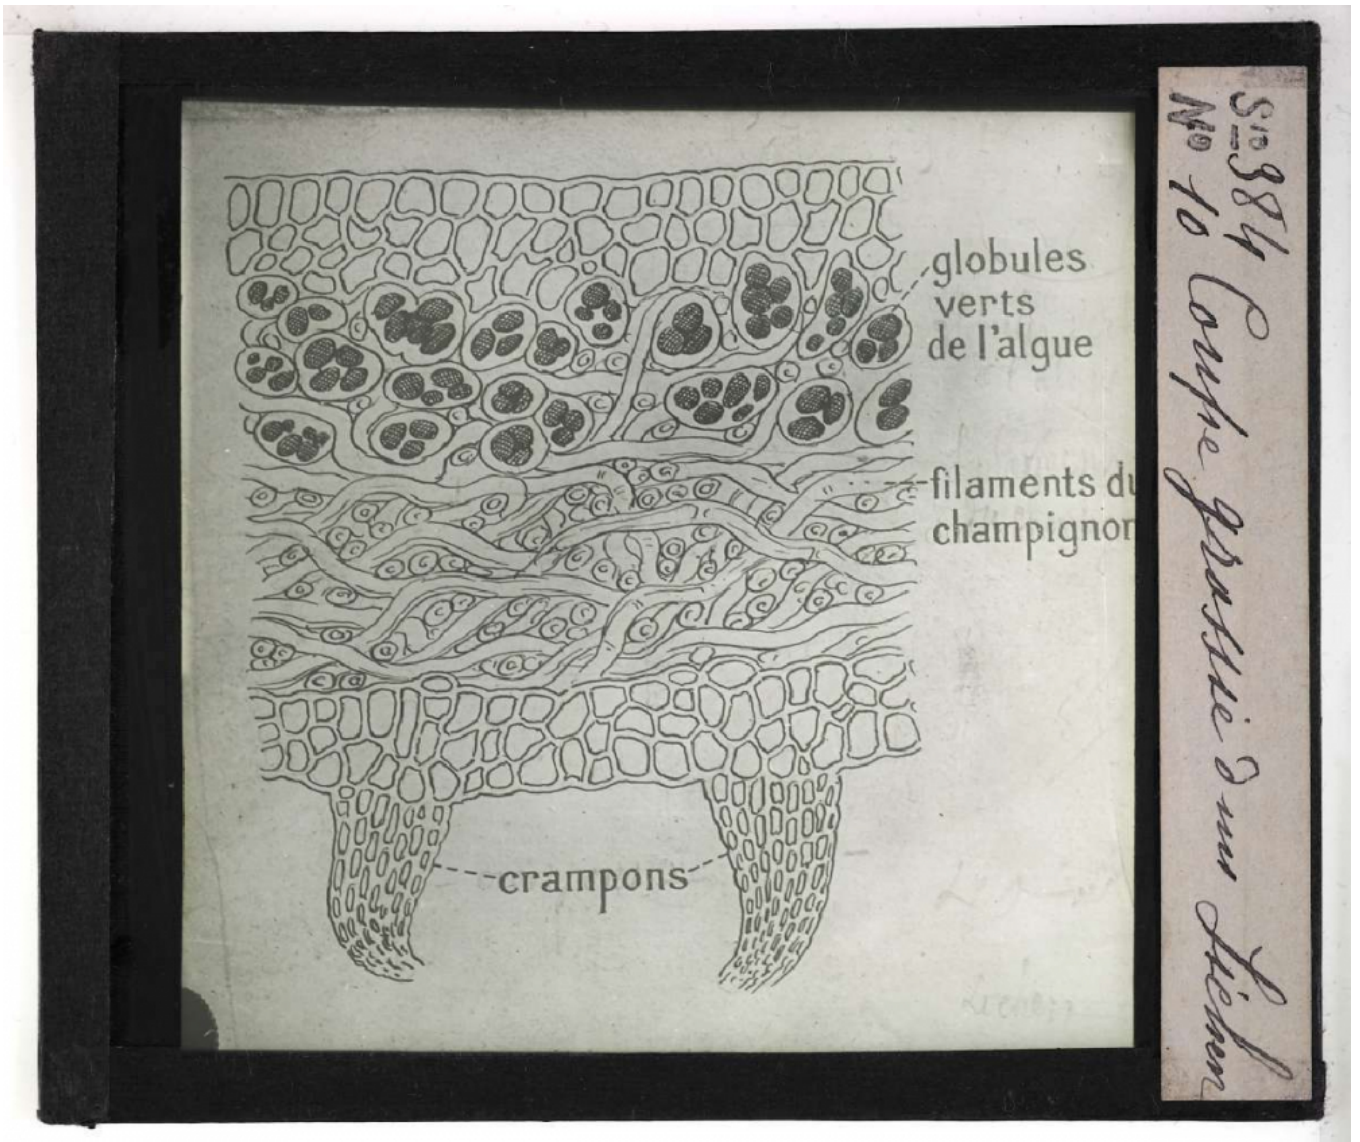 globules
verts
de l'algue
filaments du
champignon
crampons
Sie 384
No 10 Coupe grossie d'un Lichen